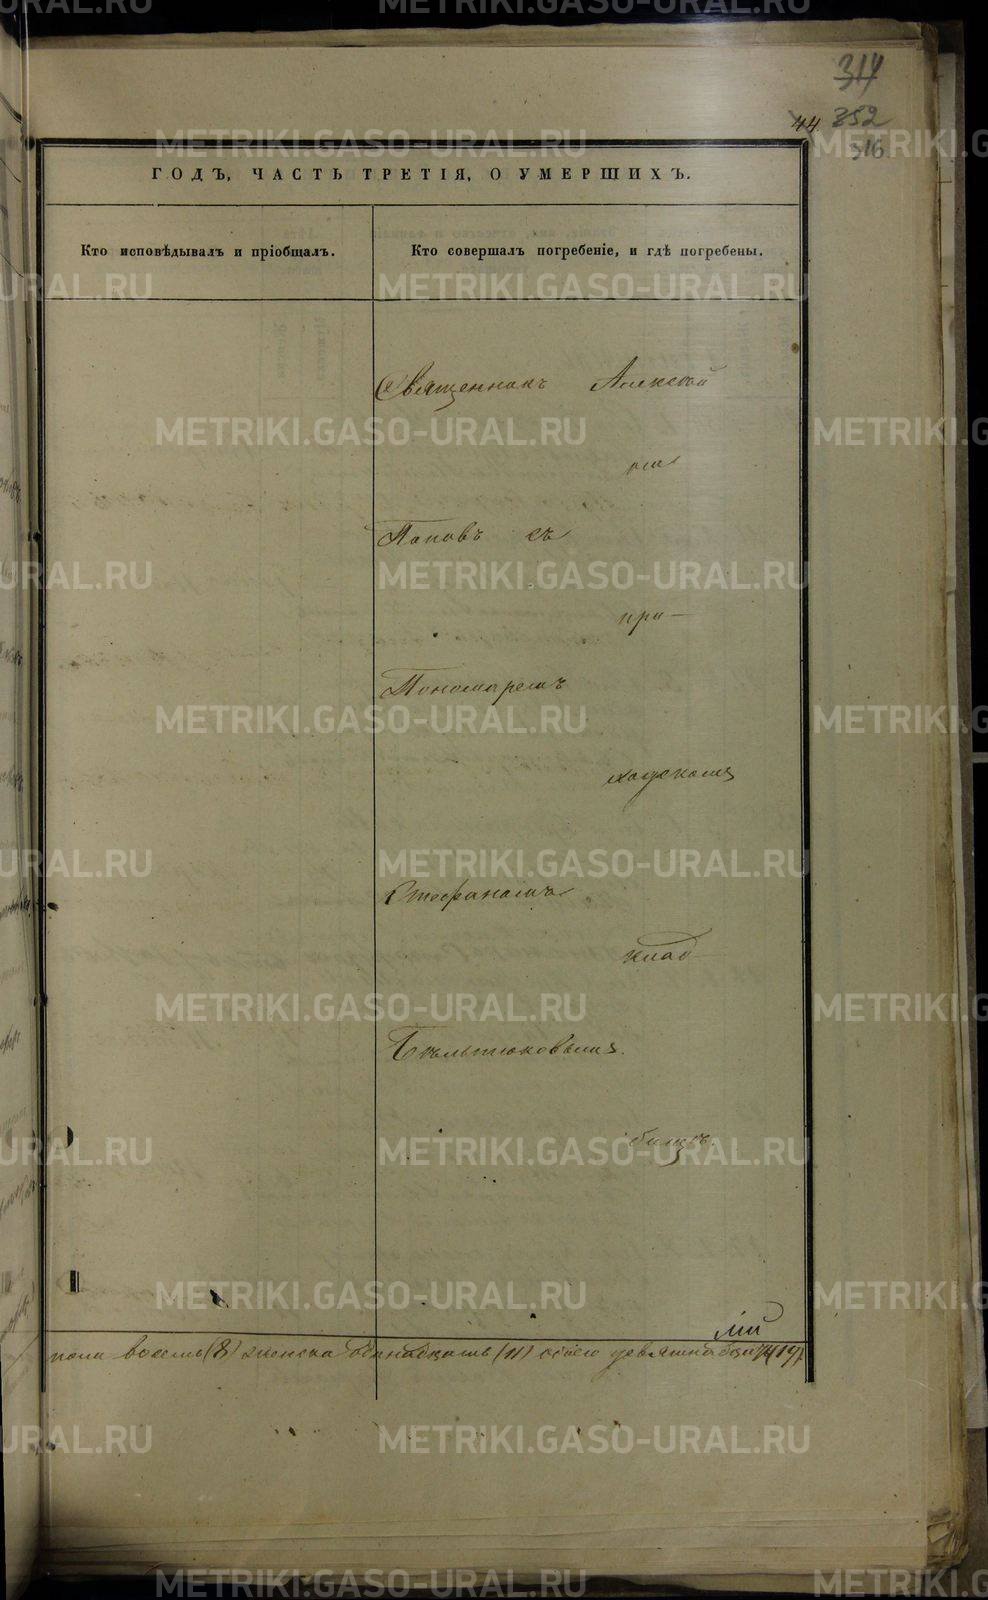 314
44. 352
316
ГОДЪ, ЧАСТЬ ТРЕТІЯ, О УМЕРШИХЪ.
Кто исповѣдывалъ и пріобщалъ.
Кто совершалъ погребеніе, и гдѣ погребены.
Священникъ Алексѣй
Поповъ съ
при-
Пономаремъ
ходскомъ
Стефаномъ
клад
Бѣльтюковымъ.
бищѣ.
пола восемь (8) женска одинадцать (11) всего девятнадцать (19)
METRIKI.GASO-URAL.RU